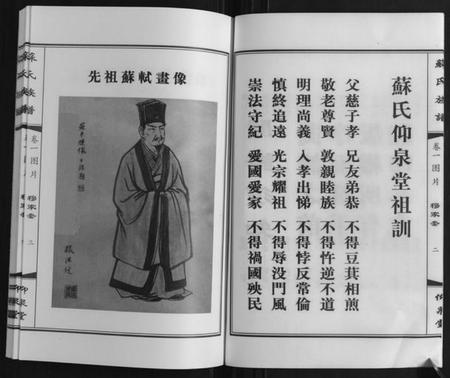 蘇氏族譜
卷一图片
二
仰泉堂
蘇氏仰泉堂祖訓
父慈子孝 兄友弟恭 不得豆萁相煎
敬老尊賢 敦親睦族 不得忤逆不道
明理尚義 入孝出悌 不得悖反常倫
慎終追遠 光宗耀祖 不得辱没門風
崇法守紀 愛國愛家 不得禍國殃民
先祖蘇軾畫像
蘇氏族譜
卷一图片
三
仰泉堂